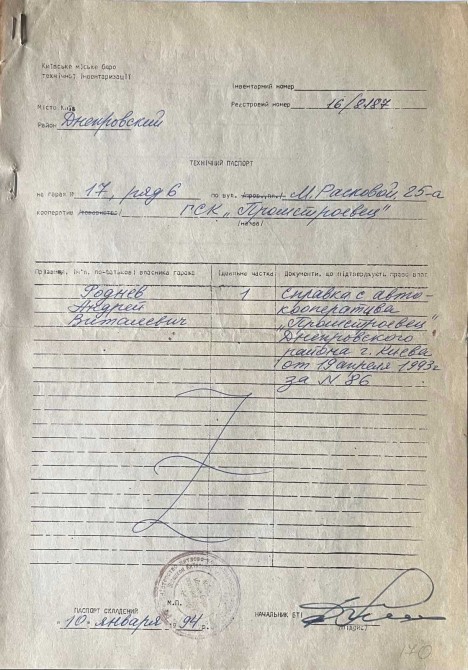 Київське міське бюро
технічної інвентаризації
Інвентарний номер
Реєстровий номер 16/8187
Місто Київ
Район Днепровский
ТЕХНІЧНИЙ ПАСПОРТ
на гараж № 17, ряд 6 по вул. (пров., пл.) М. Расковой, 25-а
кооператив /товариство/ ГСК "Промстроевец"
/назва/
Прізвище, ім'я, по-батькові власника гаража Ідеальна частка Документи, що підтверджують право влас.
Роднев 1 Справка с авто-
Андрей кооператива
Виталевич "Промстроевец"
Днепровского
района г. Киева
от 19 апреля 1993г
за N 86
М.П.
ПАСПОРТ СКЛАДЕНИЙ НАЧАЛЬНИК БТІ
10 января 1994 г. (підпис)
170